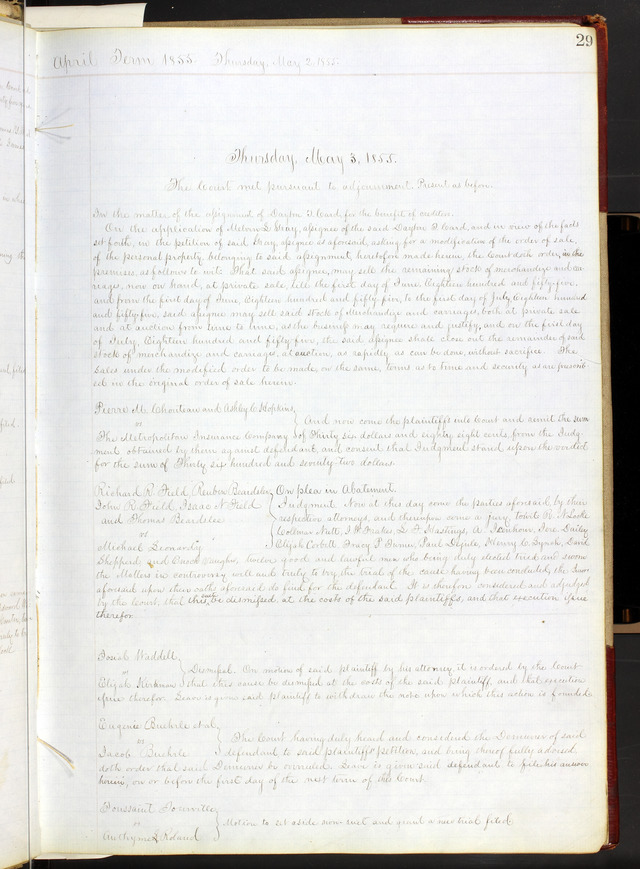 29
April Term 1855. Thursday, May 2, 1855.
Thursday, May 3, 1855.
The Court met pursuant to adjournment. Present as before.
In the matter of the assignment of Dayton I. Card for the benefit of creditors.
On the application of Melvin L. Gray, assignee of the said Dayton I. Card, and in view of the facts
set forth, in the petition of said Gray assignee as aforesaid, asking for a modification of the order of sale,
of the personal property, belonging to said assignment, heretofore made herein, the Court doth order, in the
premises, as follows to wit: That said assignee, may sell the remaining stock of merchandize and car-
riages, now on hand, at private sale, till the first day of June Eighteen hundred and fifty-five,
and from the first day of June, Eighteen hundred and fifty-five, to the first day of July Eighteen hundred
and fifty-five, said assignee may sell said stock of Merchandize and carriages, both at private sale
and at auction from time to time, as the business may require and justify, and on the first day
of July, Eighteen hundred and fifty-five, the said assignee shall close out the remainder of said
stock of merchandize and carriages, at auction, as rapidly as can be done, without sacrifice. The
sales under the modified order to be made, on the same, terms as to time and security as are prescrib-
ed in the original order of sale herein.
Pierre M. Chouteau and Ashley C. Hopkins
vs
And now come the plaintiffs into Court and remit the sum
The Metropolitan Insurance Company of Thirty six dollars and eighty eight cents, from the Judg-
ment obtained by them against defendant, and consent that Judgment stand upon the verdict
for the sum of Thirty six hundred and seventy-two dollars.
Richard R. Field, Reuben Beardslee, On plea in Abatement.
John K. Field, Isaac N. Field Judgment. Now at this day come the parties aforesaid, by their
and Thomas Beardslee respective attorneys, and thereupon come a jury, to wit:
vs Coltman Nutt, L. F. Hastings, A. Isenhour,
Michael Leonardy Elijah Corbett, Tracy P. Paul Henry C. Lynch,
Sheppard and Enoch Vaughn, twelve good and lawful men who being duly elected tried and sworn
the Matters in controversy well and truly to try the trial of the cause having been concluded, the Jurors
aforesaid upon their oaths aforesaid do find for the defendant. It is therefore considered and adjudged
by the Court, that this suit be dismissed at the costs of the said plaintiffs, and that execution issue
therefor.
Josiah Waddell
vs Dismissal. On motion of said plaintiff by his attorney, it is ordered by the Court
Elijah Kirkman that this cause be dismissed at the costs of the said plaintiff, and that execution
issue therefor. Leave is given said plaintiff to withdraw the note upon which this action is founded.
Eugenie Buehrle et al
vs The Court having duly heard and considered the Demurrer of said
Jacob Buehrle defendant to said plaintiffs petition, and being thereof fully advised
doth order that said Demurrer be overruled. Leave is given said defendant to file his answer
herein, on or before the first day of the next term of this Court.
Toussaint
vs Motion to set aside non-suit and grant a new trial filed.
Roland